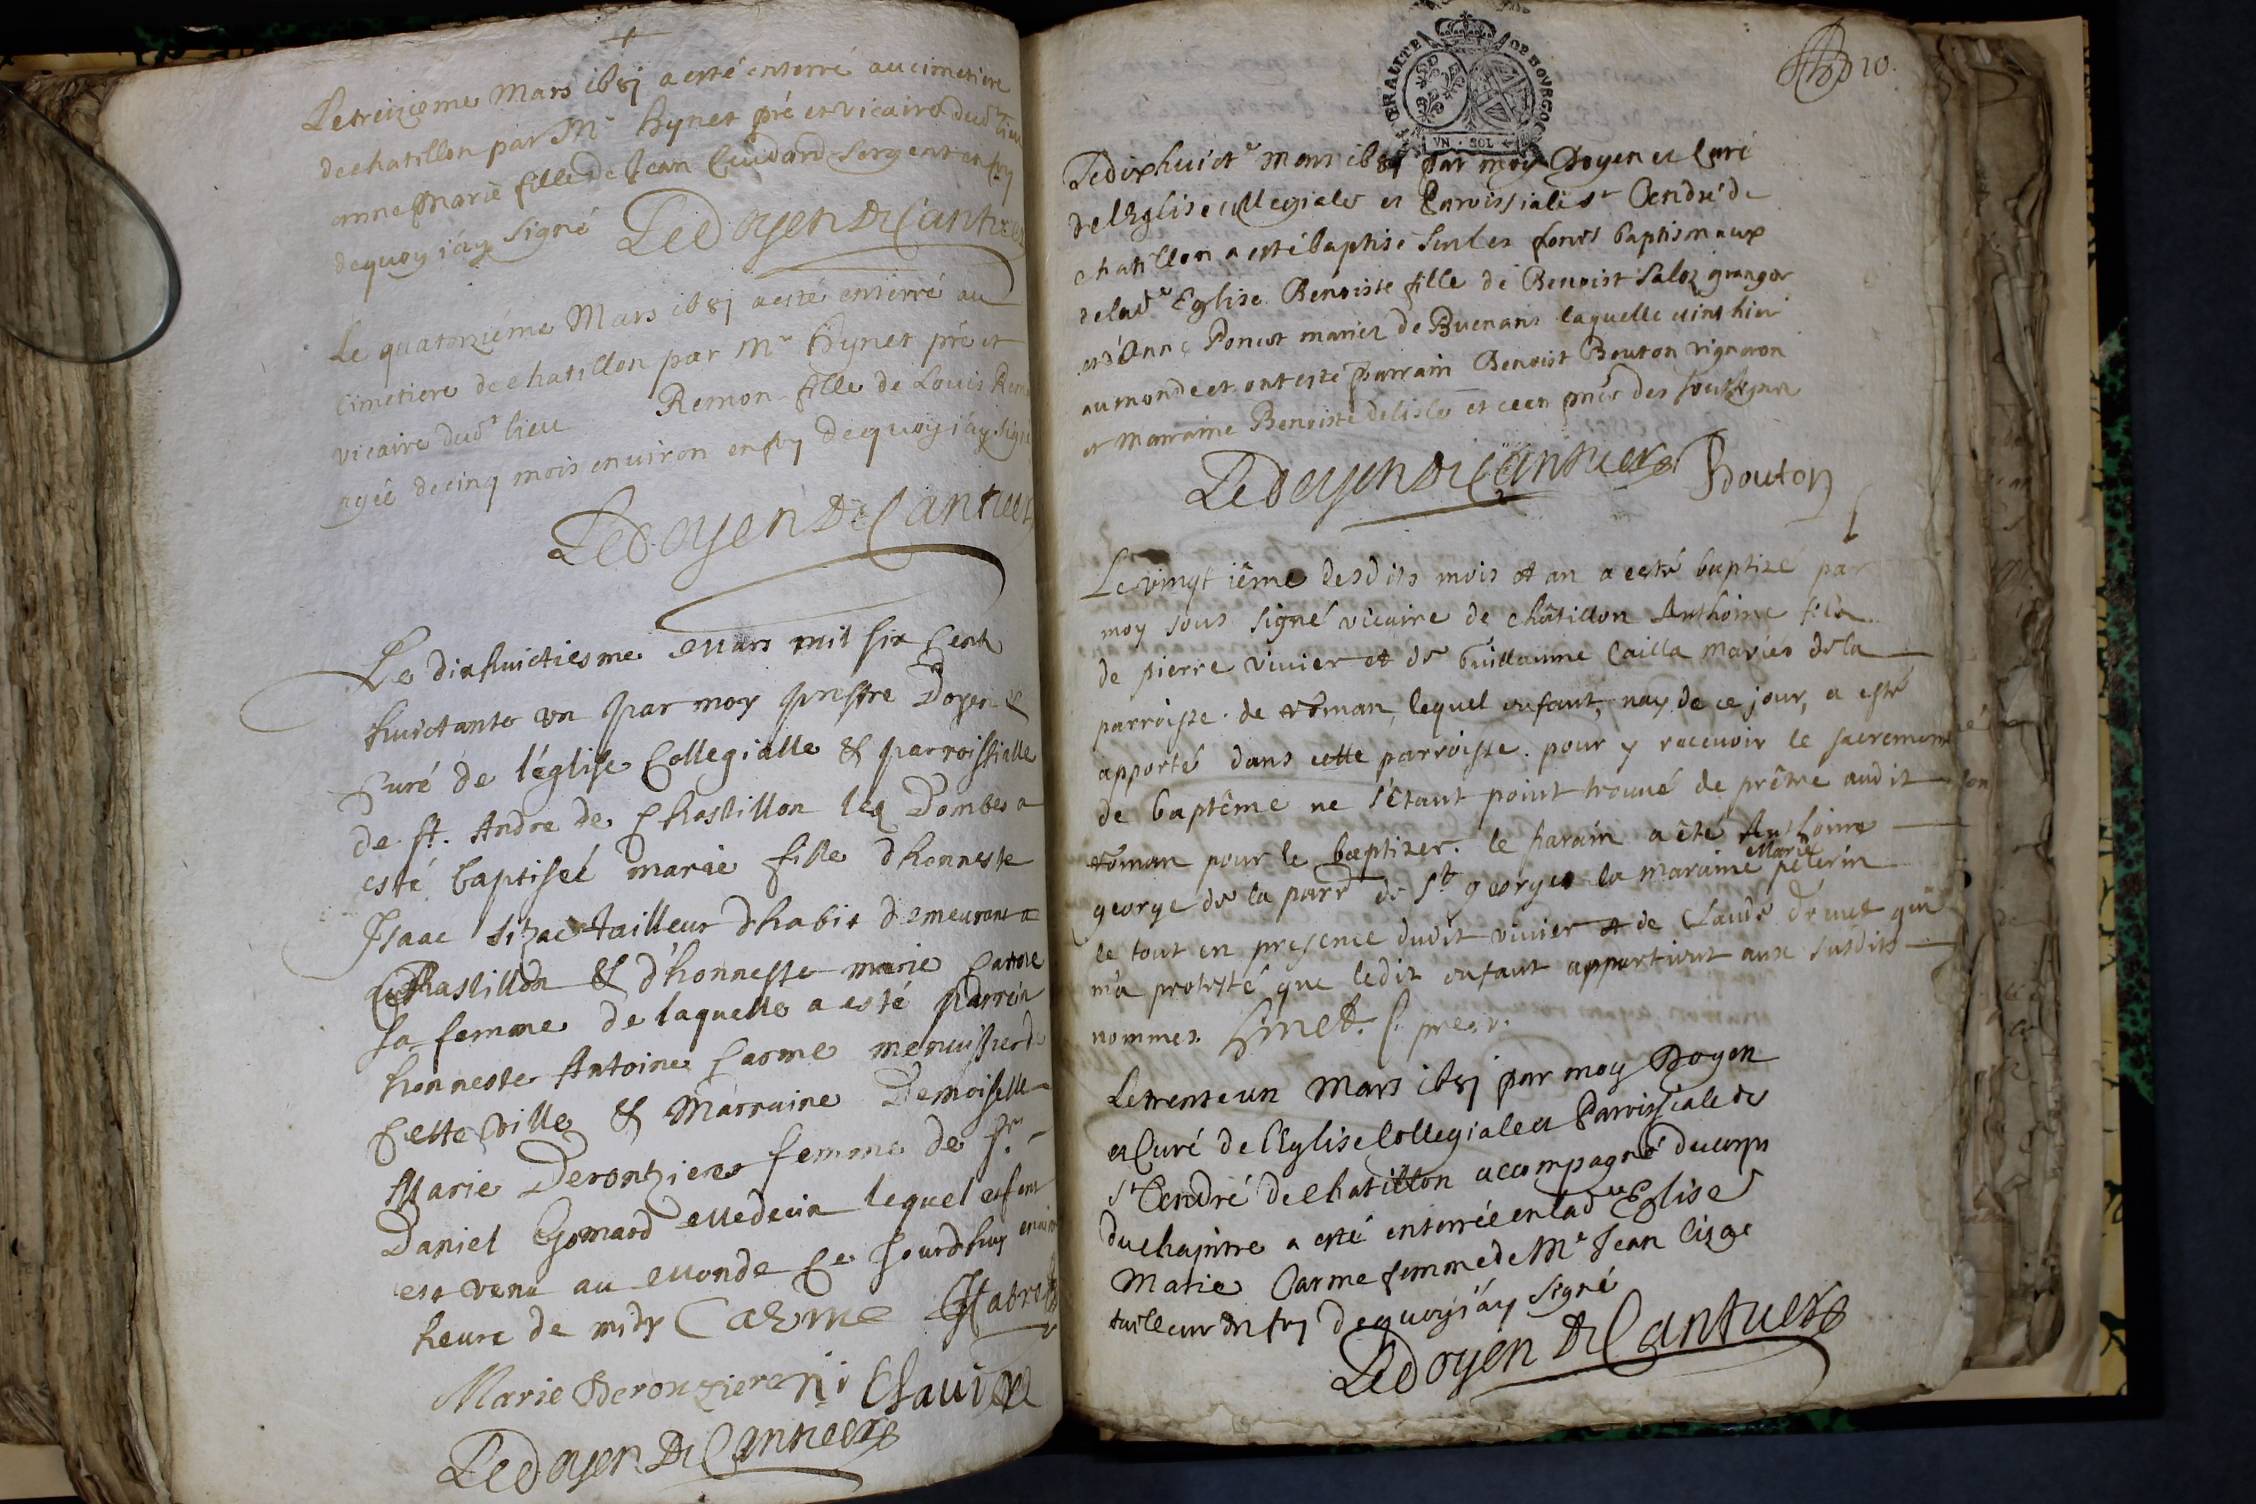 Le treizieme Mars 1681 a esté enterré au cimetiere
de chatillon par Mr hynet pré et vicaire dudt lieu
anne Marie fille de Jean Cuidard Sergent en foy
dequoy j'ay signé Le Doyen De Cantuer
Le quatorziéme Mars 1681 a esté enterré au
cimetiere de chatillon par Mr hynet pré et
vicaire dudt lieu Remon fille de Louis Remon
agée de cinq mois environ en foy dequoy j'ay signé
Le Doyen De Cantuer
Le dixhuictiesme Mars mil six cent
huictante un par moy prestre Doyen &
Curé de l'église Collegialle & parroissialle
de st. Andre de Chastillon les Dombes a
esté baptiseé marie fille d honneste
Isaac sizac tailleur d'habit demeurant a
Chastillon & d'honneste marie Carme
sa femme de laquelle a esté parrein
honneste Antoine Carme menuissier de
Cette Ville & Marraine Demoiselle
Marie Deronzieres femme de sr.
Daniel Gomard Medecin lequel enfent
est venu au Monde Ce Jourdhuy environ
heure de midy Carme
Marie Deronziere
Le Doyen De Cantuer
GERALITE DE BOURGOG
VN · SOL
20.
Le dixhuicte mars 1681 par moy Doyen et Curé
de l'Eglise collegiale et Parroissiale st Andrè de
chatillon a esté baptisé sur les fonts baptismaux
de lade Eglise Benoiste fille de Benoist Saloz granger
et d'Anne Poncet mariez de Buenans laquelle vint hier
au monde et ont esté Parrain Benoist Bouton vigneron
et Marraine Benoiste delisle et ce en
Le Doyen De Cantuer Bouton
Le vingt iême desdits mois et an a esté baptizé par
moy sous signé vicaire de châtillon Anthoine fils
de pierre vivier et de Guillaume Cailla mariés de la
parroisse de roman, lequel enfant, nay de ce jour, a esté
apporté dans cette parroisse pour y recevoir le sacrement
de baptême ne s'étant point trouvé de prêtre audit
roman pour le baptizer. le parain a êté Anthoine
george de la parr de st george la maraine Marie pelerin
le tout en presence dudit vivier et de Claude qui
m'a protesté que ledit enfant appartient aux susdits
nommes. hinet
Le trente un Mars 1681 par moy Doyen
et Curé de l'Eglise Collegiale et Parroissiale de
st Andrè de chatillon accompagné du corps
du chapitre a esté enterrée en lad Eglise
Marie Carme femme de Me Jean Cizac
tailleur en foy dequoy j'ay signé
Le Doyen De Cantuer